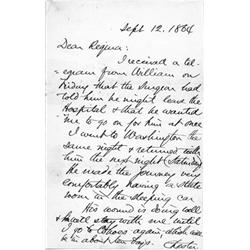 Sept 12, 1864
Dear Regina:
I received a tel-
egram from William on
Friday that the Surgeon had
told him he might leave the
Hospital & that he wanted
me to go on for him at once
I went to Washington the
same night & returned with
him the next night (Saturday)
He made the journey very
comfortably having a state
room in the sleeping car.
His wound is doing well
& he will stay with me until
I go to Cohoes again, which will
be in about ten days.
Chester